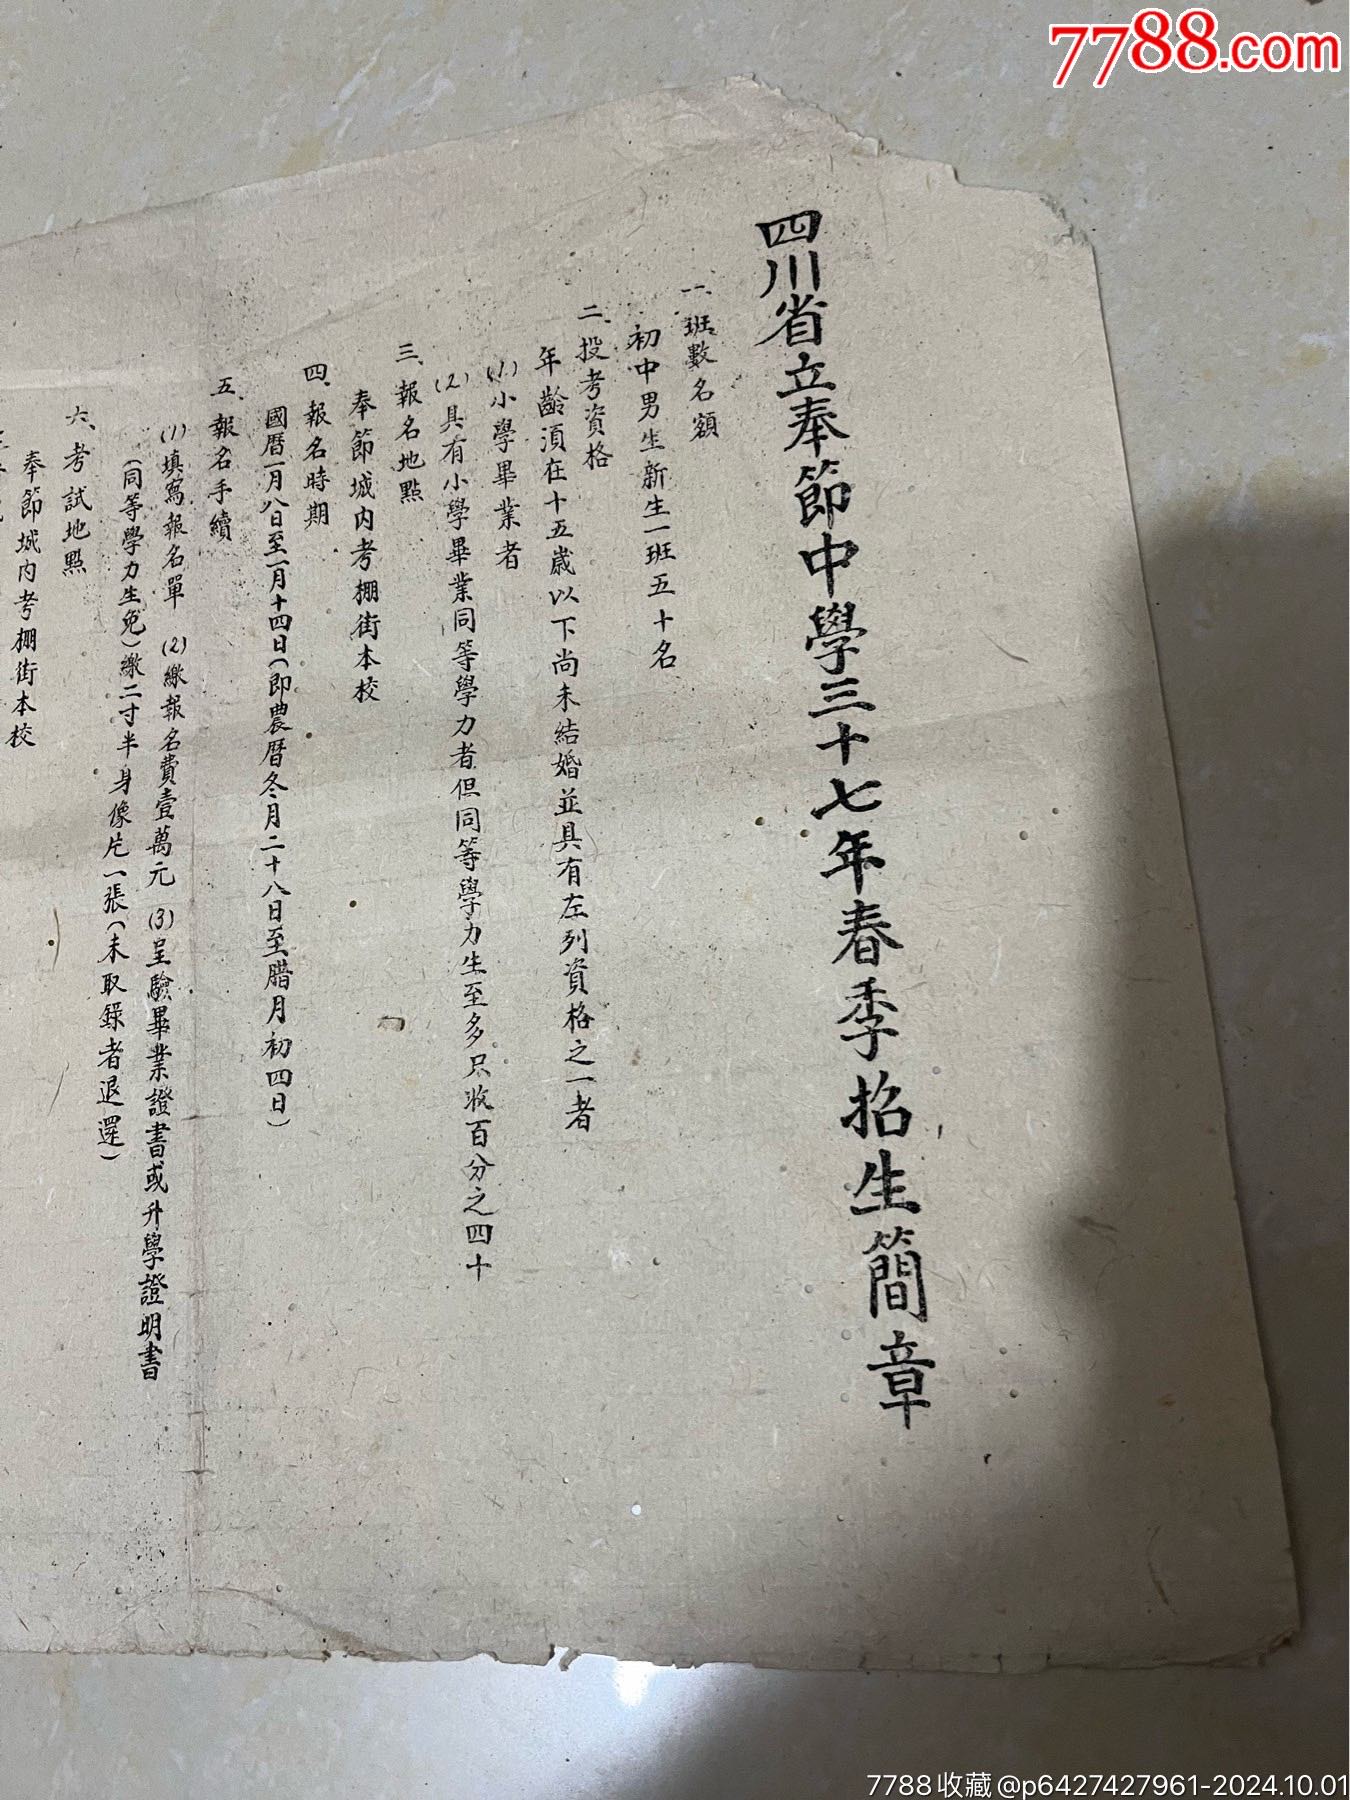 7788.com
四川省立奉節中學三十七年春季招生簡章
一、班數名額
初中男生新生一班五十名
二、投考資格
年齡須在十五歲以下尚未結婚並具有左列資格之一者
(1)小學畢業者
(2)具有小學畢業同等學力者但同等學力生至多只收百分之四十
三、報名地點
奉節城内考棚街本校
四、報名時期
國曆一月八日至一月十四日(即農曆冬月二十八日至臘月初四日)
五、報名手續
(1)填寫報名單 (2)繳報名費壹萬元 (3)呈驗畢業證書或升學證明書
(同等學力生免)繳二寸半身像片一張(未取錄者退還)
六、考試地點
奉節城内考棚街本校
7788收藏@p6427427961-2024.10.01